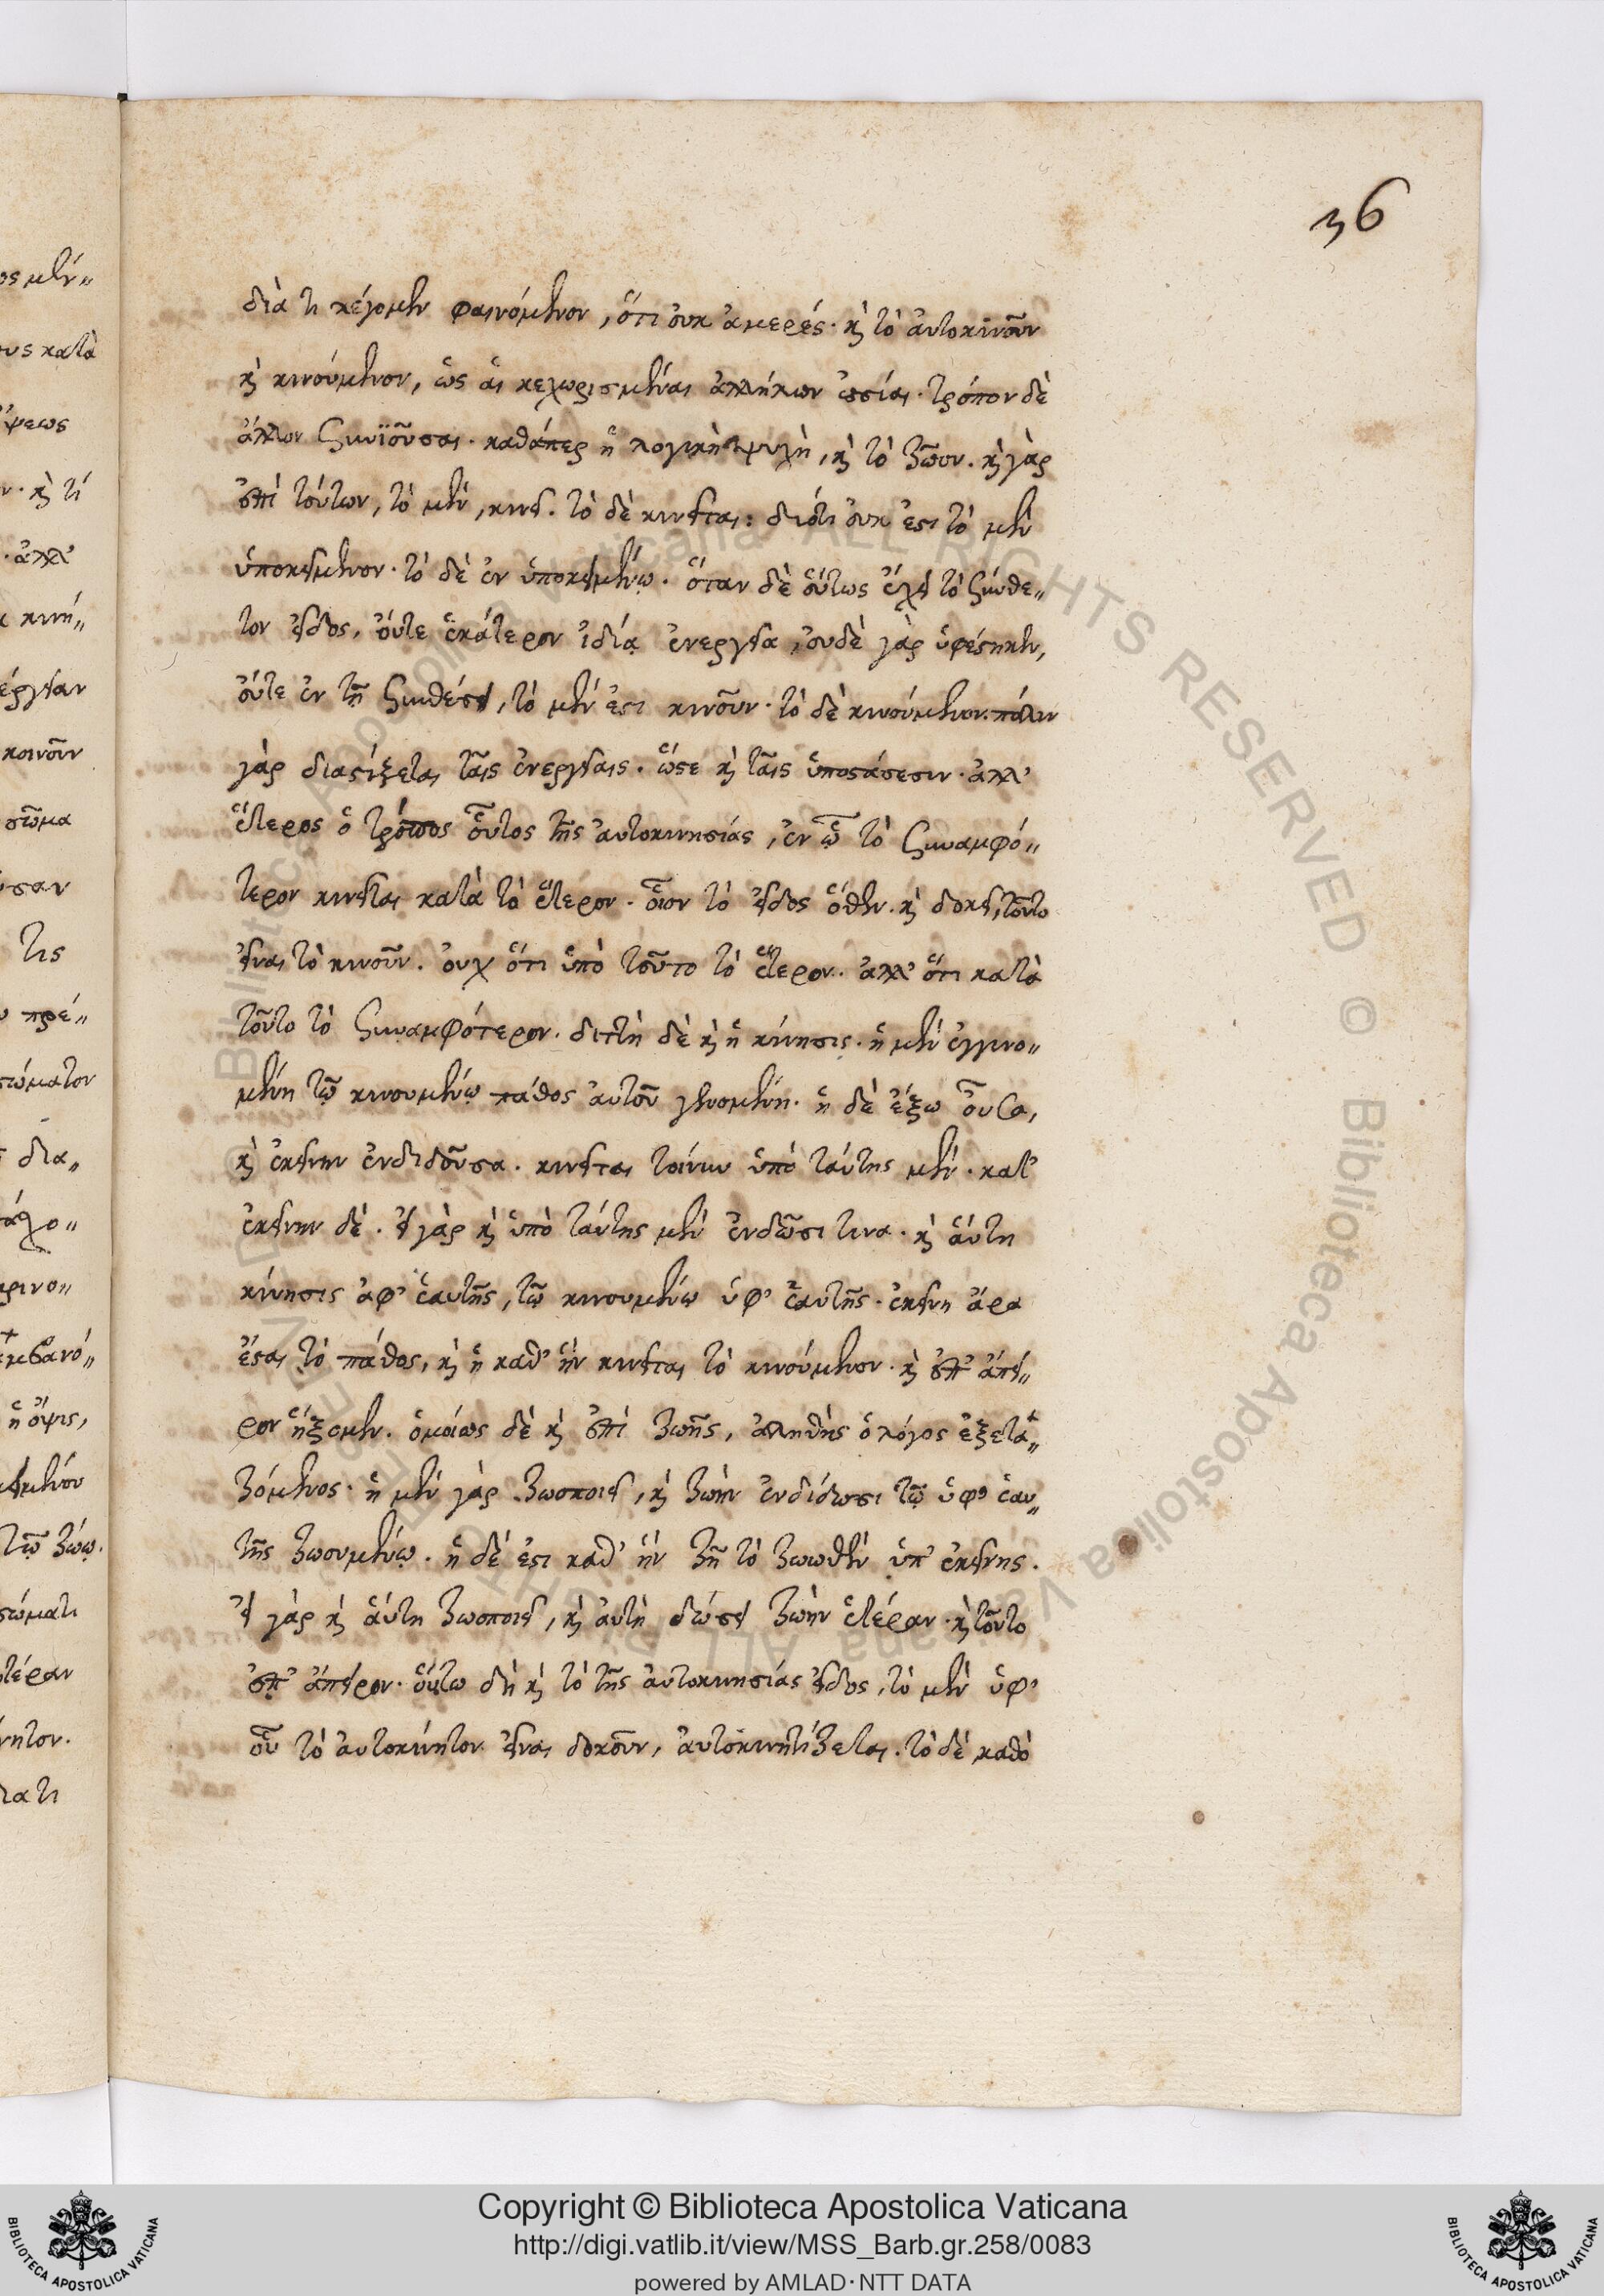 36
διὰ τί λέγομεν φαινόμενον, ὅτι οὐκ ἀμερές· καὶ τὸ αὐτοκινοῦν
καὶ κινούμενον, ὡς αἱ κεχωρισμέναι ἀλλήλων οὐσίαι· τρόπον δὲ
ἄλλον συνϊοῦσαι· καθάπερ ἡ λογικὴ ψυχὴ, καὶ τὸ ζῶον. καὶ γὰρ
ἐπὶ τούτων, τὸ μὲν, κινεῖ· τὸ δὲ κινεῖται: διότι οὐκ ἔστι τὸ μὲν
ὑποκείμενον· τὸ δὲ ἐν ὑποκειμένῳ. ὅταν δὲ οὕτως ἔχει τὸ σύνθε„
τον εἶδος, οὔτε ἑκάτερον ἰδίᾳ ἐνεργεῖα, οὐδὲ γὰρ ὑφέστηκεν,
οὔτε ἐν τῇ συνθέσει, τὸ μέν ἐστι κινοῦν· τὸ δὲ κινούμενον. πάλιν
γὰρ διαστίξεται ταῖς ἐνεργείαις. ὥστε καὶ ταῖς ὑποστάσεσιν· ἀλλ'
ἕτερος ὁ τρόπος οὗτος τῆς αὐτοκινησίας, ἐν ᾧ τὸ συναμφό„
τερον κινεῖται κατὰ τὸ ἕτερον· οἷον τὸ εἶδος ὅθεν. καὶ δοκεῖ, τοῦτο
εἶναι τὸ κινοῦν. οὐχ ὅτι ὑπὸ τοῦτο τὸ ἕτερον. ἀλλ' ὅτι κατὰ
τοῦτο τὸ συναμφότερον. διττὴ δὲ καὶ ἡ κίνησις. ἡ μὲν ἐγγινο„
μένη τῷ κινουμένῳ πάθος αὐτοῦ γενομένη. ἡ δὲ ἔξω οὖσα,
καὶ ἐκείνην ἐνδιδοῦσα. κινεῖται τοίνυν ὑπὸ ταύτης μέν. κατ'
ἐκείνην δέ. εἰ γὰρ καὶ ὑπὸ ταύτης μὲν ἐνδῶσι τινα. καὶ αὕτη
κίνησις ἀφ' ἑαυτῆς, τῷ κινουμένῳ ὑφ' ἑαυτῆς. ἐκείνη ἄρα
ἔσται τὸ πάθος, καὶ ἡ καθ' ἣν κινεῖται τὸ κινούμενον. καὶ ἐπ' ἄπει„
ρον ἥξομεν. ὁμοίως δὲ καὶ ἐπὶ ζωῆς, ἀληθὴς ὁ λόγος ἐξετα„
ζόμενος· ἡ μὲν γὰρ ζωοποιεῖ, καὶ ζωὴν ἐνδίδωσι τῷ ὑφ' ἑαυ„
τῆς ζωουμένῳ. ἡ δέ ἐστι καθ' ἣν ζῇ τὸ ζωωθὲν ὑπ' ἐκείνης.
εἰ γὰρ καὶ αὕτη ζωοποιεῖ, καὶ αὐτὴ δώσει ζωὴν ἑτέραν. καὶ τοῦτο
ἐπ' ἄπειρον. οὕτω δὴ καὶ τὸ τῆς αὐτοκινησίας εἶδος, τὸ μὲν ὑφ'
οὗ τὸ αὐτοκίνητον εἶναι δοκοῦν, αὐτοκινητίζεται. τὸ δὲ καθὸ
Copyright © Biblioteca Apostolica Vaticana
http://digi.vatlib.it/view/MSS_Barb.gr.258/0083
powered by AMLAD·NTT DATA